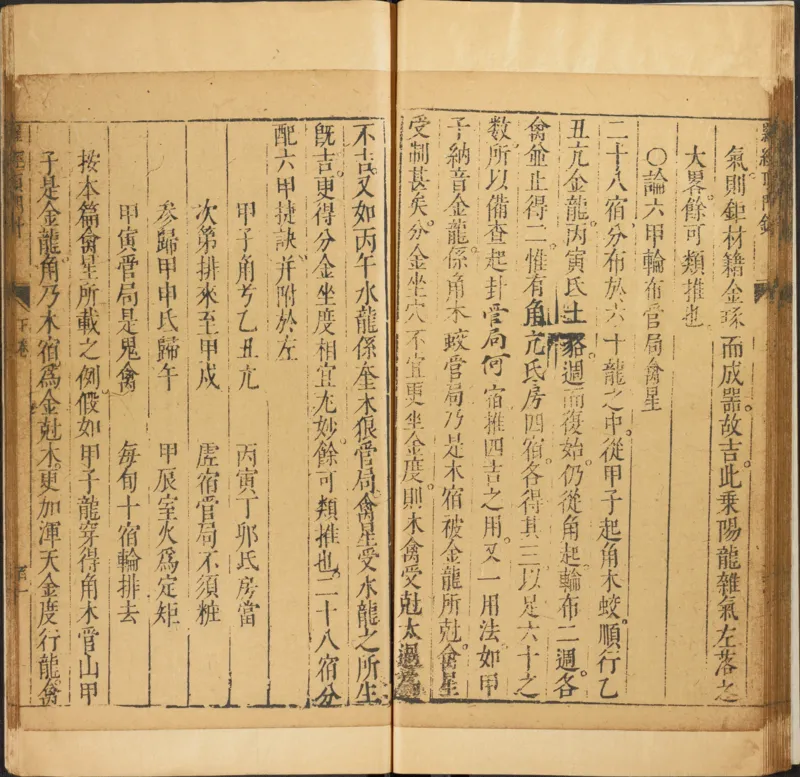 氣則鉅材籍金琢而成器故吉此乗陽龍雜氣左落之
大畧餘可類推也
〇論六甲輪布管局禽星
二十八宿分布於六十龍之中從甲子起角木蛟順行乙
丑亢金龍丙寅氐土貉週而復始仍從角起輪布二週各
禽並止得二惟有角亢氐房四宿各得其三以足六十之
数所以備查起卦管局何宿推四吉之用又一用法如甲
子納音金龍係角木蛟管局乃是木宿被金龍所尅禽星
受制甚矣分金坐穴不宜更坐金度則木禽受尅太過為
不吉又如丙午水龍係奎木狼管局禽星受水龍之所生
旣吉更得分金坐度相宜尤妙餘可類推也二十八宿分
配六甲捷訣并附於左
甲子角兮乙丑亢 丙寅丁卯氐房當
次第排來至甲戌 虛宿管局不須粧
参歸甲申氐歸午 甲辰室火為定矩
甲寅管局是鬼禽 每旬十宿輪排去
按本篇禽星所載之例假如甲子龍穿得角木管山甲
子是金龍角乃木宿為金尅木更加渾天金度行龍禽
下卷